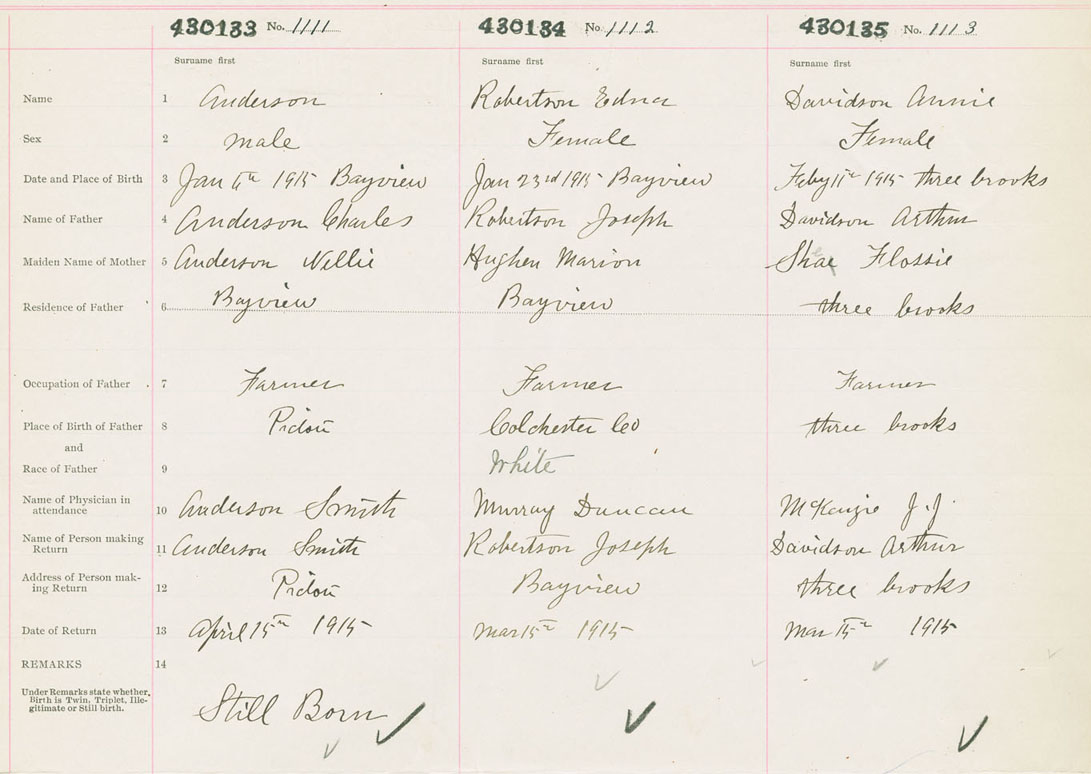 430133 No. 1111 430134 No. 1112 430135 No. 1113
Surname first Surname first Surname first
Name 1 Anderson Robertson Edna Davidson Annie
Sex 2 male Female Female
Date and Place of Birth 3 Jan 1915 Bayview Jan 23rd 1915 Bayview Feby 11th 1915 three brooks
Name of Father 4 Anderson Charles Robertson Joseph Davidson Arthur
Maiden Name of Mother 5 Anderson Nellie Hughen Marion Flossie
Residence of Father 6 Bayview Bayview three brooks
Occupation of Father 7 Farmer Farmer Farmer
Place of Birth of Father 8 Pictou Colchester Co three brooks
and
Race of Father 9 White
Name of Physician in
attendance 10 Anderson Smith Murray Duncan McKenzie J.J.
Name of Person making
Return 11 Anderson Smith Robertson Joseph Davidson Arthur
Address of Person mak-
ing Return 12 Pictou Bayview three brooks
Date of Return 13 April 15th 1915 Mar 15th 1915 Mar 15th 1915
REMARKS 14
Under Remarks state whether
Birth is Twin, Triplet, Ille-
gitimate or Still birth.
Still Born